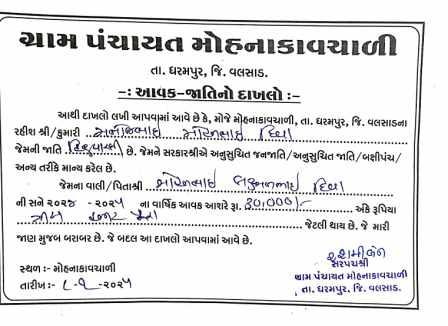 ગ્રામ પંચાયત મોહનાકાવચાળી
તા. ધરમપુર, જિ. વલસાડ.
-: આવક-જાતિનો દાખલો :-
આથી દાખલો લખી આપવામાં આવે છે કે, મોજે મોહનાકાવચાળી, તા. ધરમપુર, જિ. વલસાડના
રહીશ શ્રી/કુમારી
જેમની જાતિ છે. જેમને સરકારશ્રીએ અનુસુચિત જનજાતિ/અનુસુચિત જાતિ/બક્ષીપંચ/
અન્ય તરીકે માન્ય કરેલ છે.
જેમના વાલી/પિતાશ્રી
ની સને ૨૦૨૪ - ૨૦૨૫ ના વાર્ષિક આવક આશરે રૂા. 30,000/- અંકે રૂપિયા
જેટલી થાય છે. જે મારી
જાણ મુજબ બરાબર છે. જે બદલ આ દાખલો આપવામાં આવે છે.
સ્થળ :- મોહનાકાવચાળી
સરપંચશ્રી
ગ્રામ પંચાયત મોહનાકાવચાળી
તારીખ :- ૨૦૨૫
તા. ધરમપુર, જિ. વલસાડ.